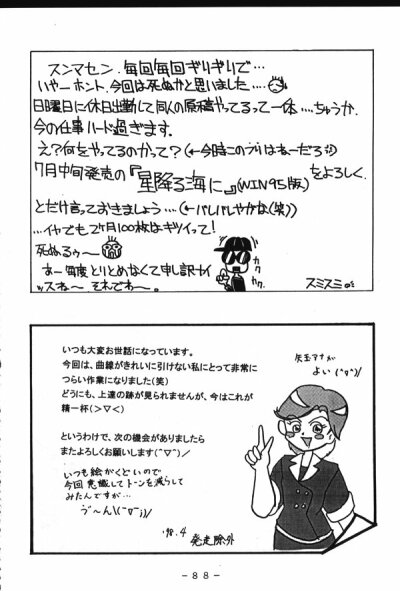 スンマセン、毎回毎回ギリギリで…
いやーホント、今回は死ぬかと思いました……
日曜日に休日出勤して同人の原稿やってるって一体……ちゅうか、
今の仕事ハード過ぎます。
え?何をやってるのかって?(←今時このフリはねーだろ
7月中旬発売の『星降る海に』(WIN95版)をよろしく。
とだけ言っておきましょう…(←バレバレやがな(笑))
…イヤでも1ヶ月100枚はキツイって!
死ぬるぅ〜
あー毎度とりとめなくて申し訳ナイ
ッスね〜 それでわ〜。
カク
カク
スミスミ
いつも大変お世話になっています。
今回は、曲線がきれいに引けない私にとって非常に
つらい作業になりました(笑)
どうにも、上達の跡が見られませんが、今はこれが
精一杯(>▽<)
というわけで、次の機会がありましたら
またよろしくお願いします(⌒▽⌒)/
いつも絵がくどいので
今回意識してトーンを減らして
みたんですが…
う゛〜ん\(⌒▽⌒;)/
'98.4 発走除外
アナが
よい(^▽^)/
-88-